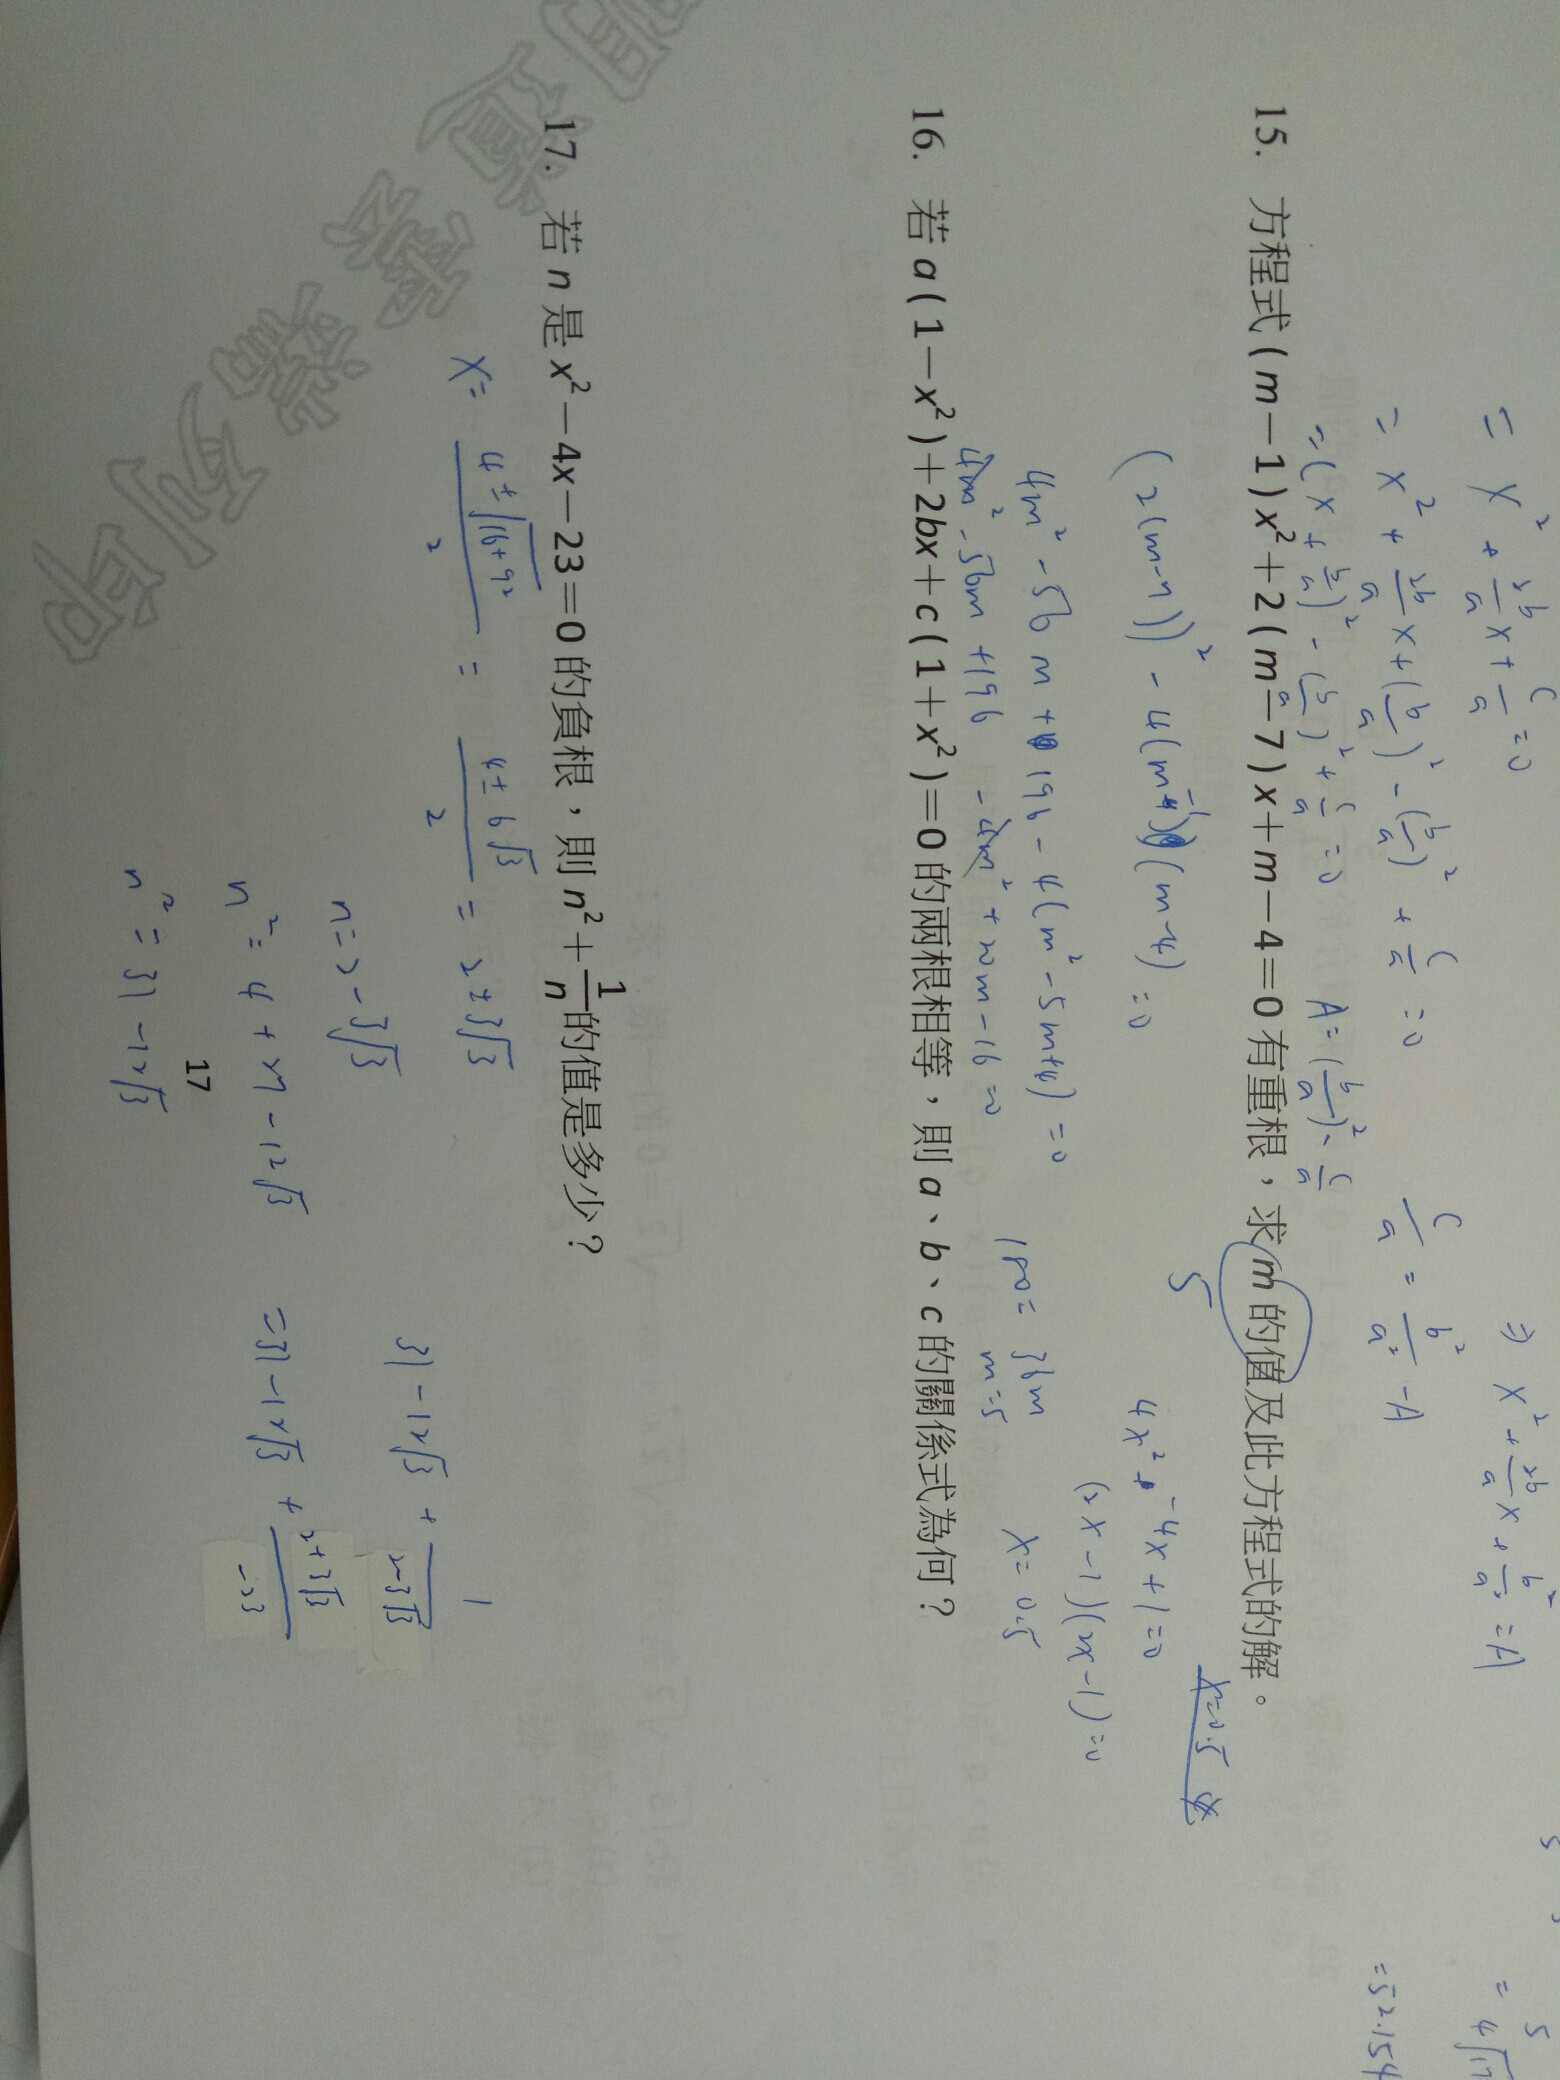 = x² + 2b/a x + c/a = 0
⇒ x² + 2b/a x + b²/a² = A
= x² + 2b/a x + (b/a)² - (b/a)² + c/a = 0
c/a = b²/a² - A
= (x + b/a)² - (b/a)² + c/a = 0
A = (b/a)² - c/a
= 52.154
15. 方程式(m－1)x²＋2(m－7)x＋m－4＝0有重根，求m的值及此方程式的解。
5
x=0.5
(2(m-7))² - 4(m-1)(m-4) = 0
4x² - 4x + 1 = 0
(2x-1)(2x-1) = 0
4m² - 56m + 196 - 4(m² - 5m + 4) = 0
180 = 36m
4m² - 56m + 196 - 4m² + 20m - 16 = 0
m = 5
x = 0.5
16. 若a(1－x²)＋2bx＋c(1＋x²)＝0的兩根相等，則a、b、c的關係式為何？
17. 若n是x²－4x－23＝0的負根，則n²＋1/n的值是多少？
x = (4±√(16+92))/2 = (4±6√3)/2 = 2±3√3
n = 2 - 3√3
31 - 12√3 + 1/(2-3√3)
n² = 4 + 27 - 12√3
= 31 - 12√3 + (2+3√3)/(-23)
n² = 31 - 12√3
17